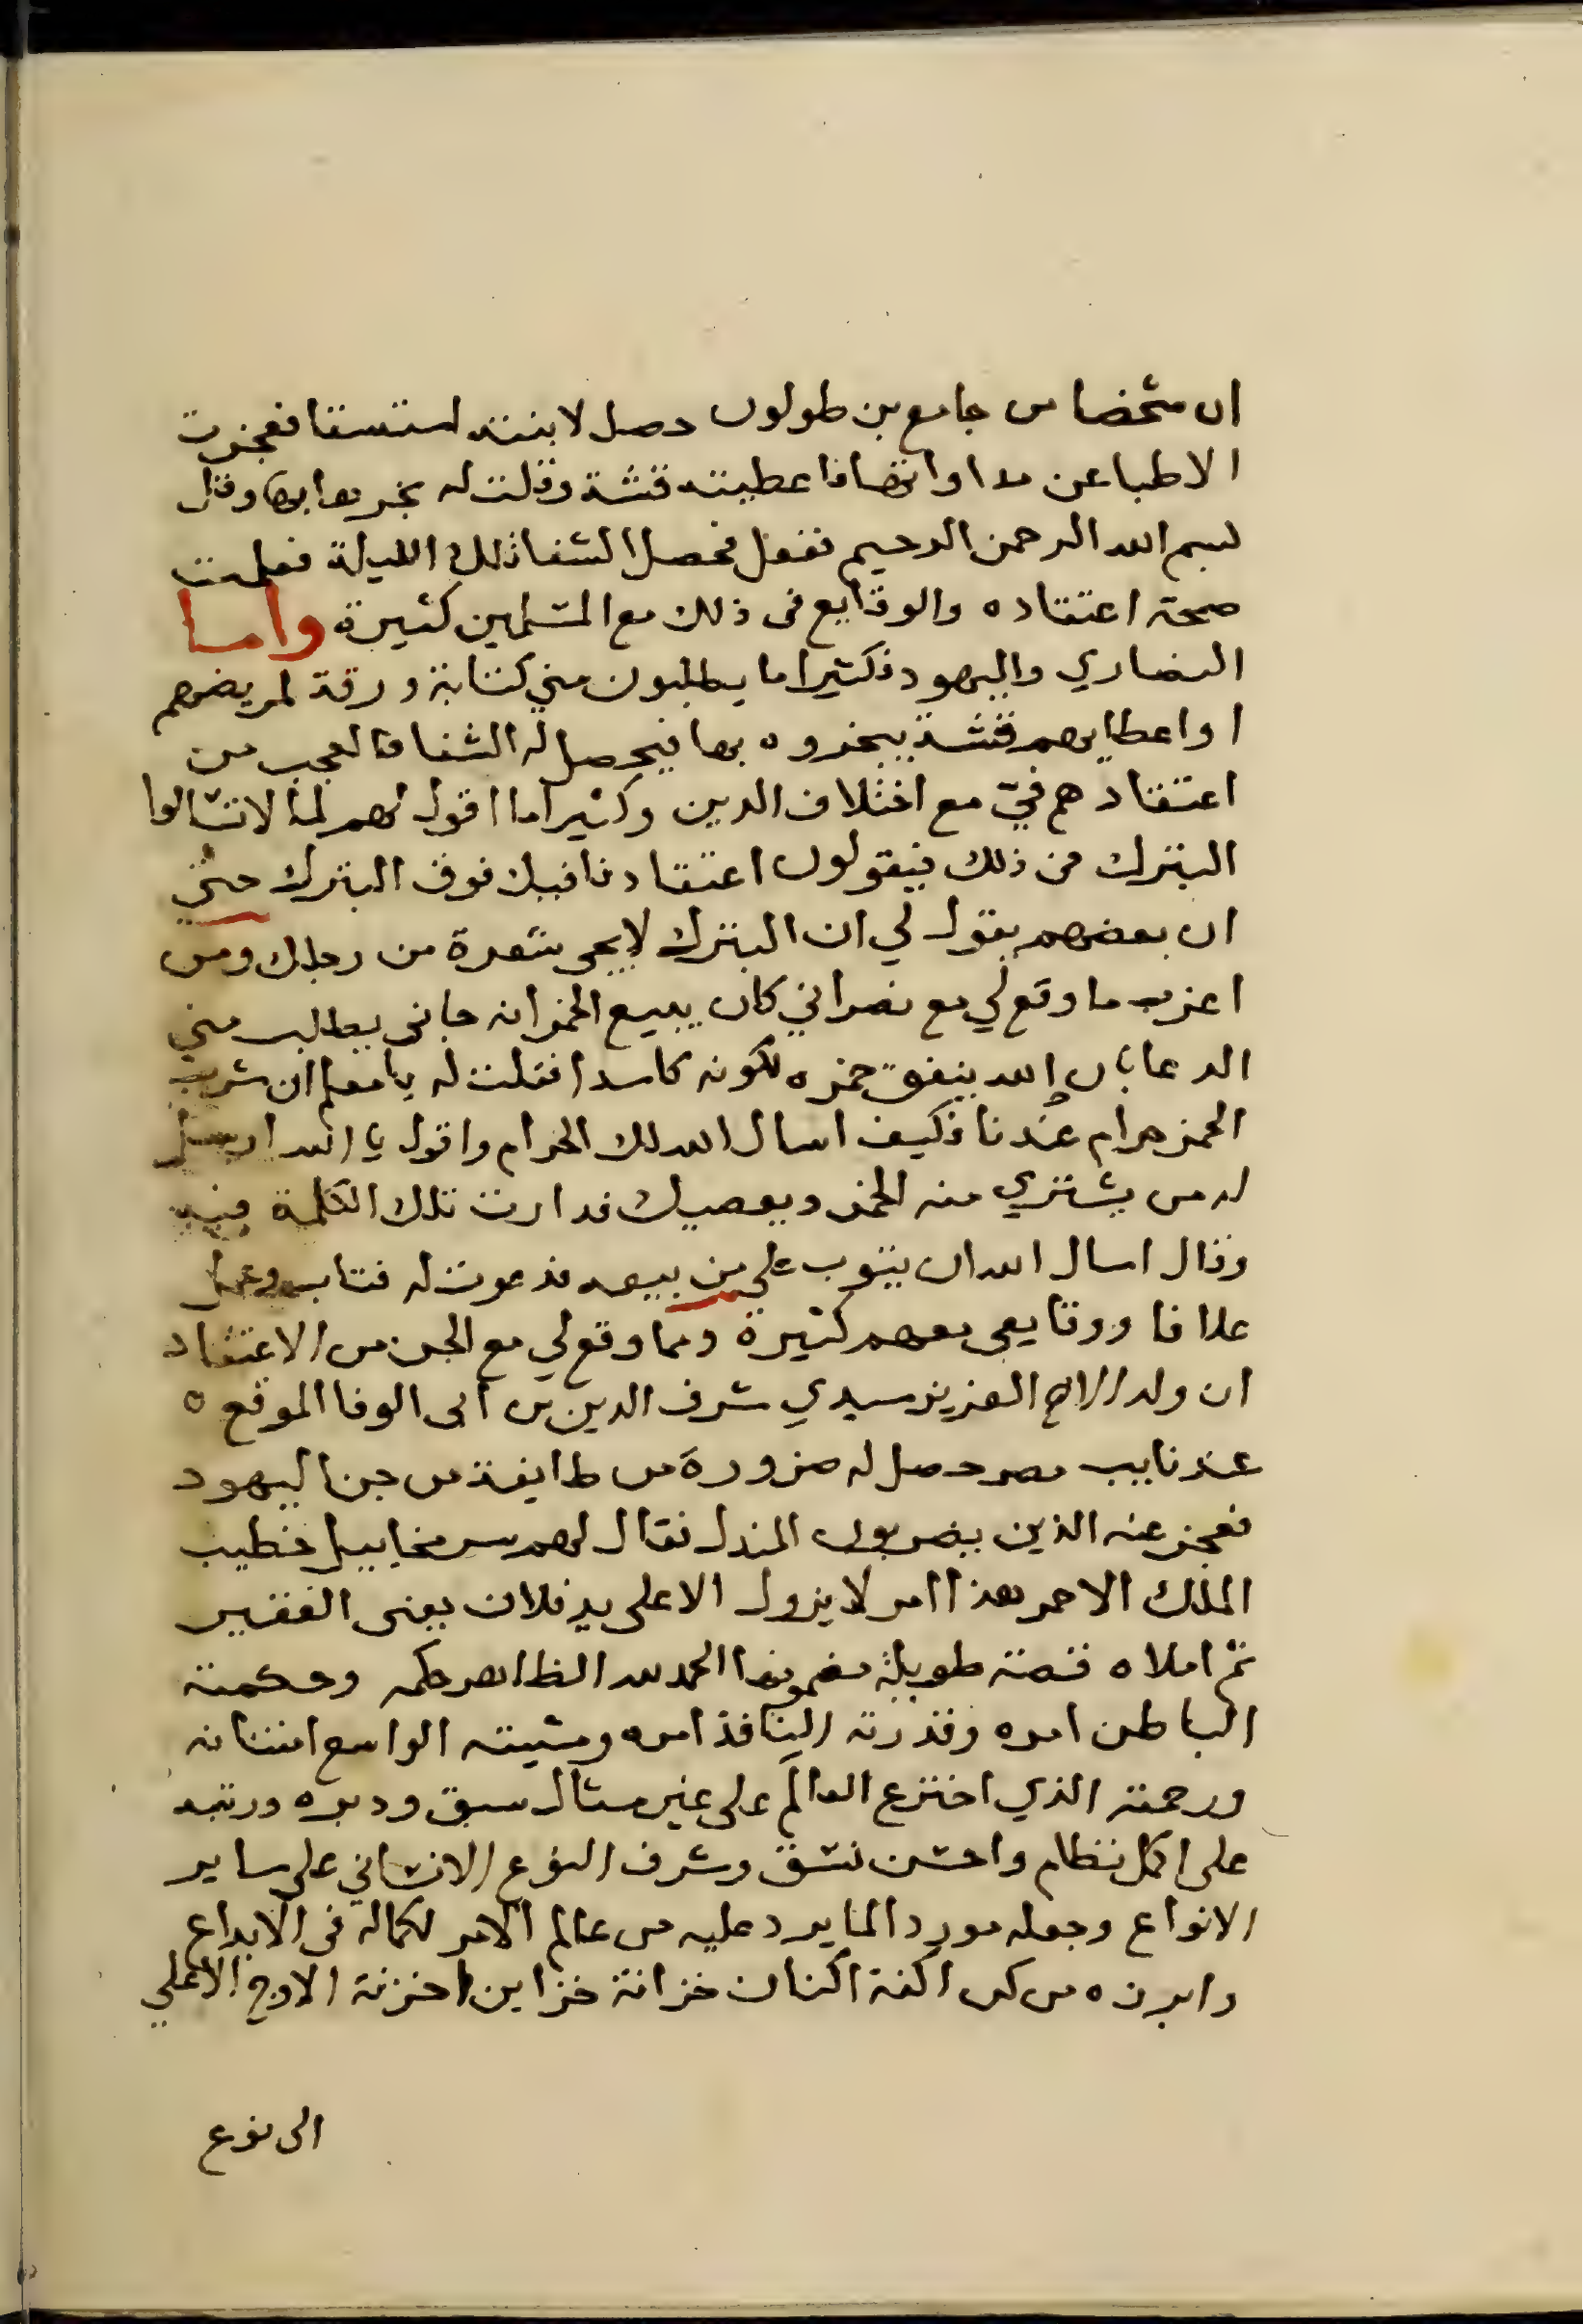 ان شخصا من جامع بن طولون حصل لابنته استسقا فعجزت
الاطبا عن مداواتها فاعطيته قشة وقلت له بخرها بها وقل
بسم الله الرحمن الرحيم ففعل فحصل الشفا تلك الليلة فعلمت
صحة اعتقاده والوقايع في ذلك مع المسلمين كثيرة واما
النصاري واليهود فكثيرا ما يطلبون مني كتابة ورقة لمريضهم
او اعطايهم قشة يبخروه بها فيحصل له الشفا فالعجب من
اعتقادهم في مع اختلاف الدين وكثيرا ما اقول لهم لم لا تسالوا
البترك في ذلك فيقولون اعتقادنا فيك فوق البترك حتي
ان بعضهم يقول لي ان البترك لا يجي شعرة من رجلك ومن
اغرب ما وقع لي مع نصراني كان يبيع الخمر انه جاني يطلب مني
الدعا بان الله ينفق خمره لكونه كاسدا فقلت له يا معلم ان شرب
الخمر حرام عندنا فكيف اسال الله لك الحرام واقول يا الله ارسل
له من يشتري منه الخمر ويعصيك فدارت تلك الكلمة فيه
وقال اسال الله ان يتوب علي من بيعه فدعوت له فتاب وعمل
علافا ووقايعي معهم كثيرة ومما وقع لي مع الجن من الاعتقاد
ان ولد الاخ العزيز سيدي شرف الدين بن ابي الوفا الموقع ه
عند نايب مصر حصل له ضرورة من طايفة من جن اليهود
فعجز عنه الذين يضربون المندل فقال لهم سر مخاييل خطيب
الملك الاحمر هذا امر لا يزول الا على يد فلان يعني الفقير
ثم املاه قصة طويلة مضمونها الحمد لله الظاهر حكمه وحكمته
الباطن امره وقدرته النافذ امره ومشيته الواسع امتنانه
ورحمته الذي اخترع العالم على غير مثال سبق ودبره ورتبه
على اكمل نظام واحسن نسق وشرف النوع الانساني على ساير
الانواع وجعله موردا لما يرد عليه من عالم الامر لكماله في الابداع
وابرزه من كن اكنة اكنان خزانة خزاين اخزنة الاوج الاعلي
الى نوع